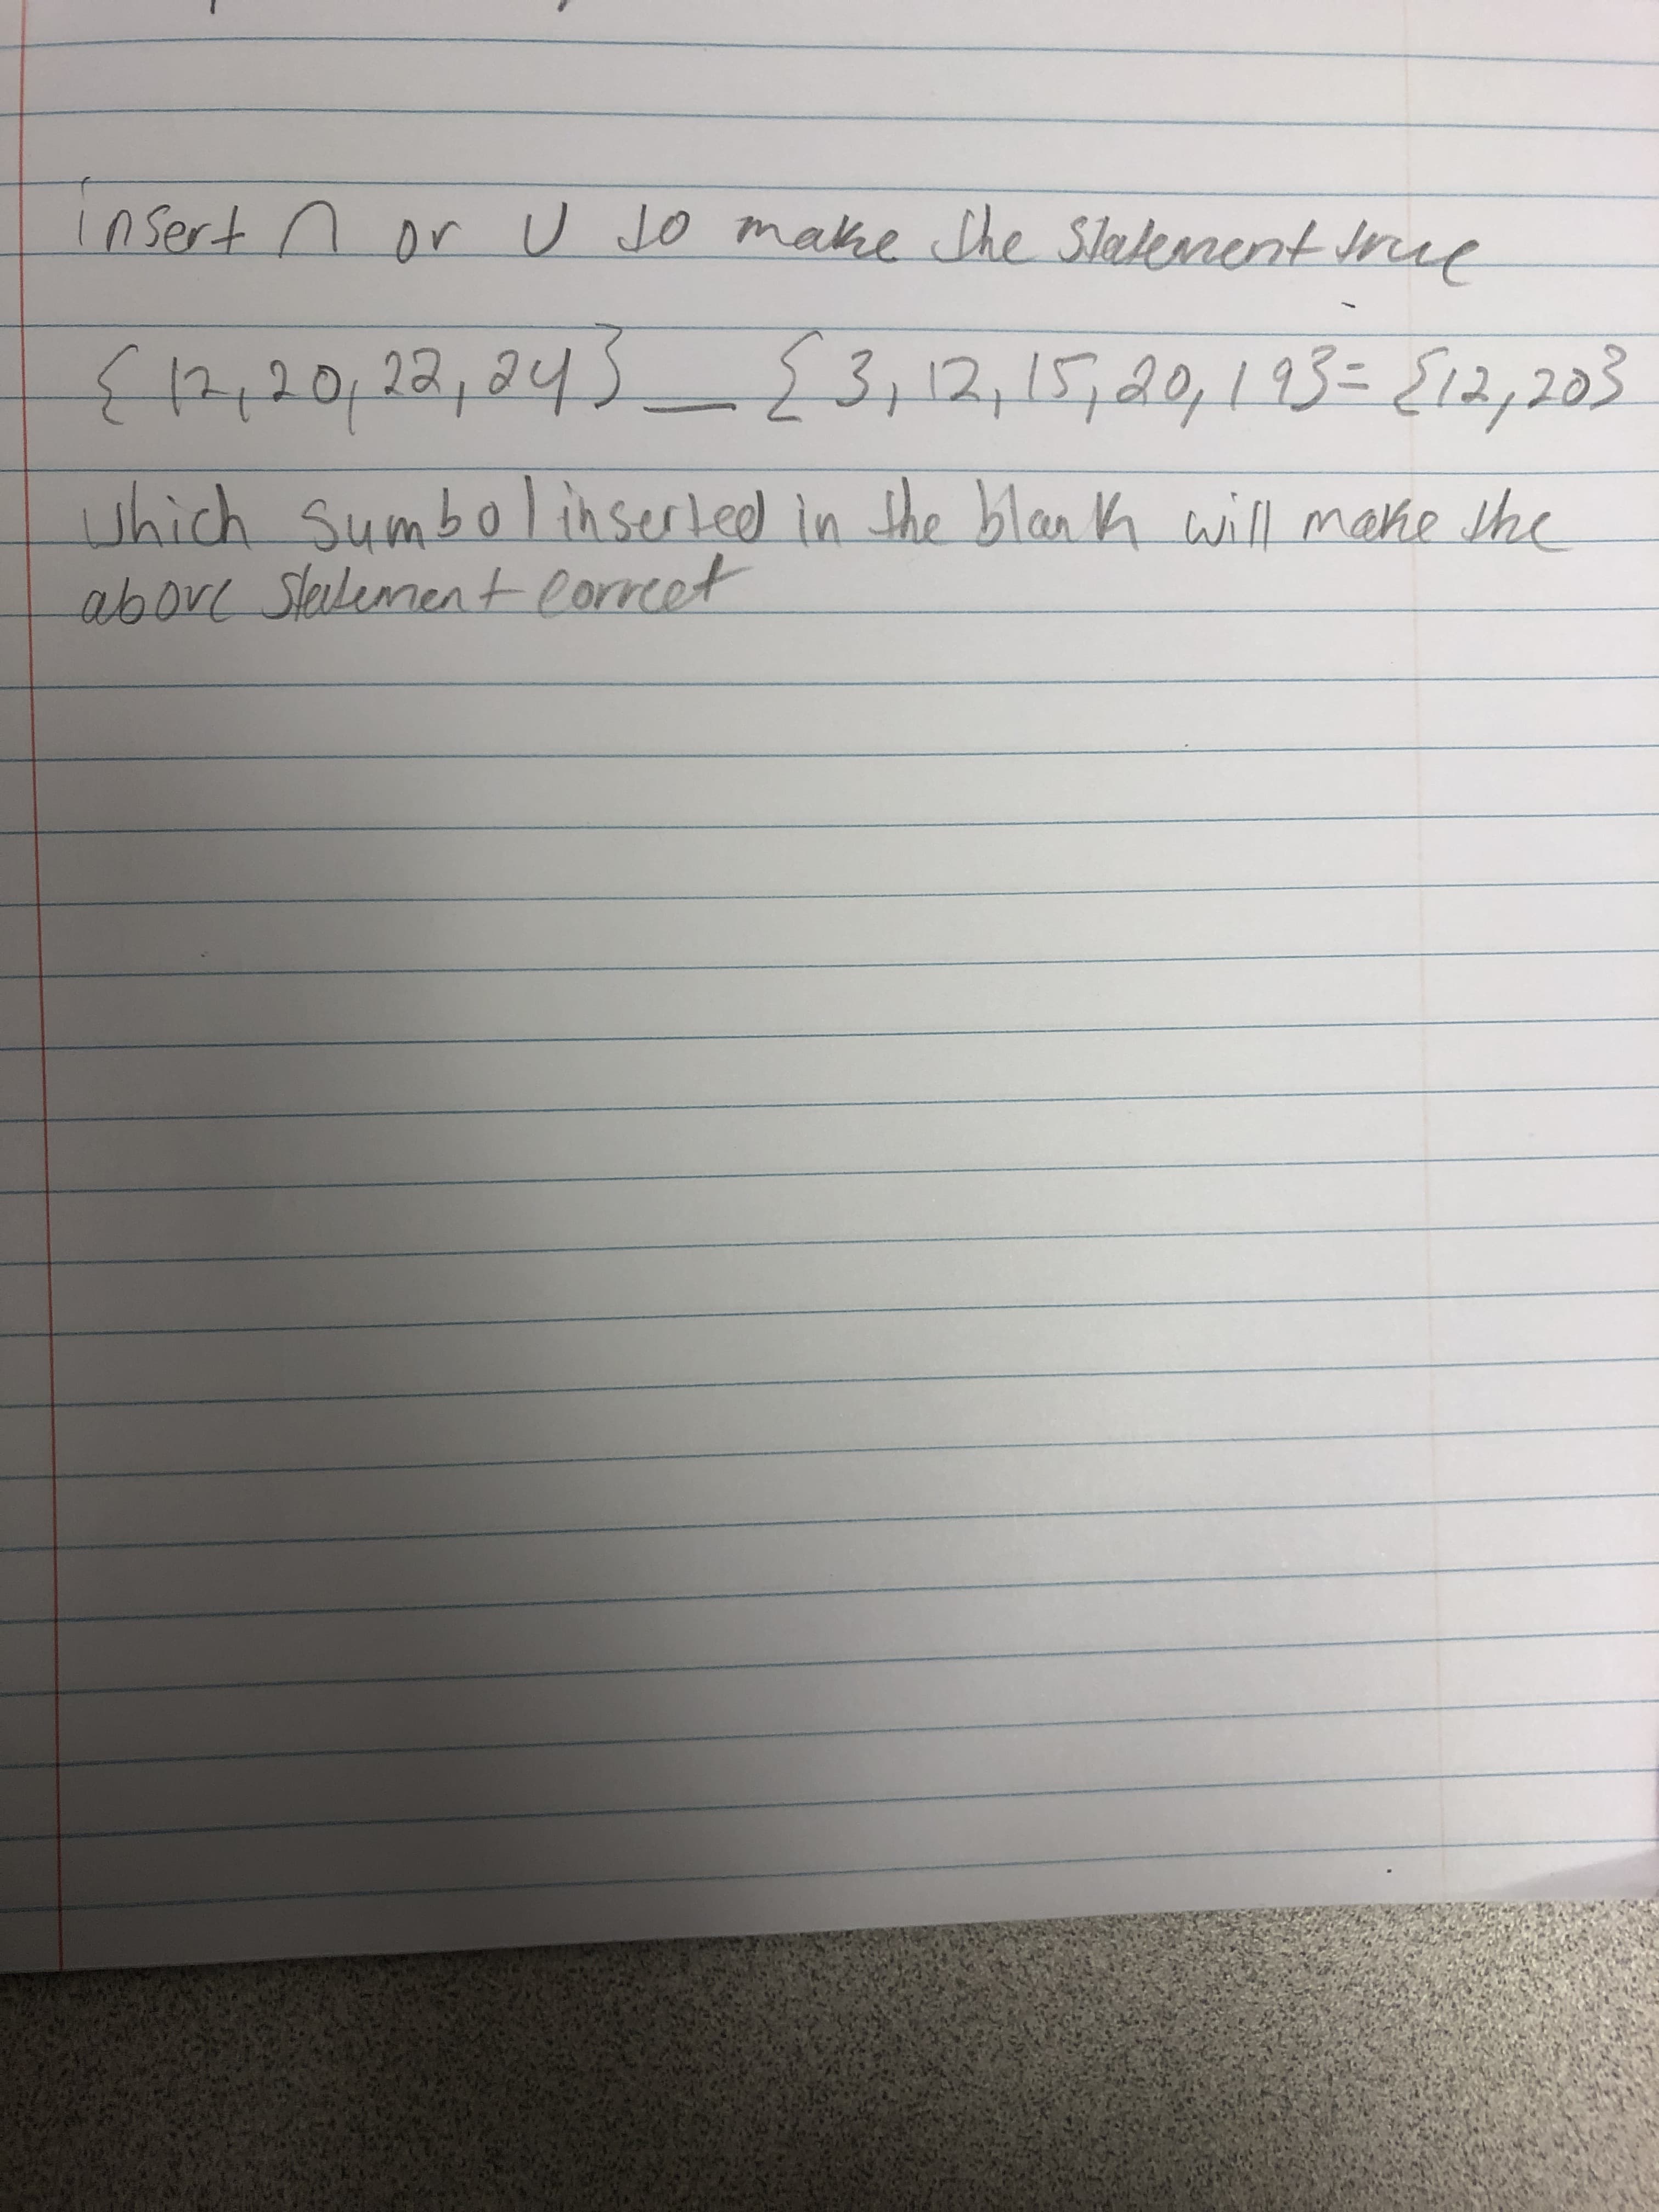 insert ∩ or ∪ to make the statement true
{12,20,22,24} _ {3,12,15,20,19}={12,20}
which sumbol inserted in the blank will make the
above statement correct